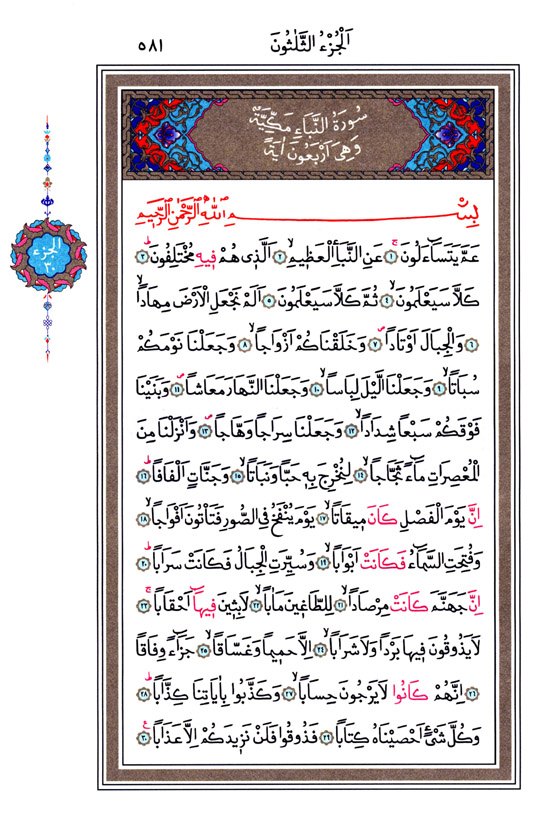 اَلْجُزْءُ الثَّلٰثُونَ
٥٨١
سُورَةُ النَّبَاءِ مَكِّيَّةٌ
وَهِىَ اَرْبَعُونَ اٰيَةً
الجزء
٣٠
بِسْــــــــمِ اللّٰهِ الرَّحْمٰنِ الرَّحِيمِ
عَمَّ يَتَسَٓاءَلُونَۚ ﴿١﴾ عَنِ النَّبَأِ الْعَظِيمِۙ ﴿٢﴾ اَلَّذِى هُمْ فِيهِ مُخْتَلِفُونَۜ ﴿٣﴾
كَلَّا سَيَعْلَمُونَۙ ﴿٤﴾ ثُمَّ كَلَّا سَيَعْلَمُونَ ﴿٥﴾ اَلَمْ نَجْعَلِ الْاَرْضَ مِهَاداًۙ
﴿٦﴾ وَالْجِبَالَ اَوْتَاداًۖ ﴿٧﴾ وَخَلَقْنَاكُمْ اَزْوَاجاًۙ ﴿٨﴾ وَجَعَلْنَا نَوْمَكُمْ
سُبَاتاًۙ ﴿٩﴾ وَجَعَلْنَا الَّيْلَ لِبَاساًۙ ﴿١٠﴾ وَجَعَلْنَا النَّهَارَ مَعَاشاًۖ ﴿١١﴾ وَبَنَيْنَا
فَوْقَكُمْ سَبْعاً شِدَاداًۙ ﴿١٢﴾ وَجَعَلْنَا سِرَاجاً وَهَّاجاًۖ ﴿١٣﴾ وَاَنْزَلْنَا مِنَ
الْمُعْصِرَاتِ مَٓاءً ثَجَّاجاًۙ ﴿١٤﴾ لِنُخْرِجَ بِهِ حَبّاً وَنَبَاتاًۙ ﴿١٥﴾ وَجَنَّاتٍ اَلْفَافاًۜ ﴿١٦﴾
اِنَّ يَوْمَ الْفَصْلِ كَانَ مِيقَاتاًۙ ﴿١٧﴾ يَوْمَ يُنْفَخُ فِى الصُّورِ فَتَأْتُونَ اَفْوَاجاًۙ ﴿١٨﴾
وَفُتِحَتِ السَّمَٓاءُ فَكَانَتْ اَبْوَاباًۙ ﴿١٩﴾ وَسُيِّرَتِ الْجِبَالُ فَكَانَتْ سَرَاباًۜ ﴿٢٠﴾
اِنَّ جَهَنَّمَ كَانَتْ مِرْصَاداًۙ ﴿٢١﴾ لِلطَّاغِينَ مَاٰباًۙ ﴿٢٢﴾ لَابِثِينَ فِيهَٓا اَحْقَاباًۚ ﴿٢٣﴾
لَا يَذُوقُونَ فِيهَا بَرْداً وَلَا شَرَاباًۙ ﴿٢٤﴾ اِلَّا حَمِيماً وَغَسَّاقاًۙ ﴿٢٥﴾ جَزَٓاءً وِفَاقاًۜ
﴿٢٦﴾ اِنَّهُمْ كَانُوا لَا يَرْجُونَ حِسَاباًۙ ﴿٢٧﴾ وَكَذَّبُوا بِاٰيَاتِنَا كِذَّاباًۜ ﴿٢٨﴾
وَكُلَّ شَىْءٍ اَحْصَيْنَاهُ كِتَاباًۙ ﴿٢٩﴾ فَذُوقُوا فَلَنْ نَزِيدَكُمْ اِلَّا عَذَاباًۚ ﴿٣٠﴾